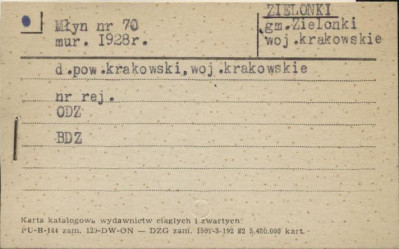 Młyn nr 70
mur. 1928r.
ZIELONKI
gm.Zielonki
woj.krakowskie
d.pow.krakowski,woj.krakowskie
nr rej.
ODZ
BDZ
Karta katalogowa wydawnictw ciągłych i zwartych
PU-B-144 zam. 129-DW-ON — DZG zam. 1507-3-192 82 5.450.000 kart.